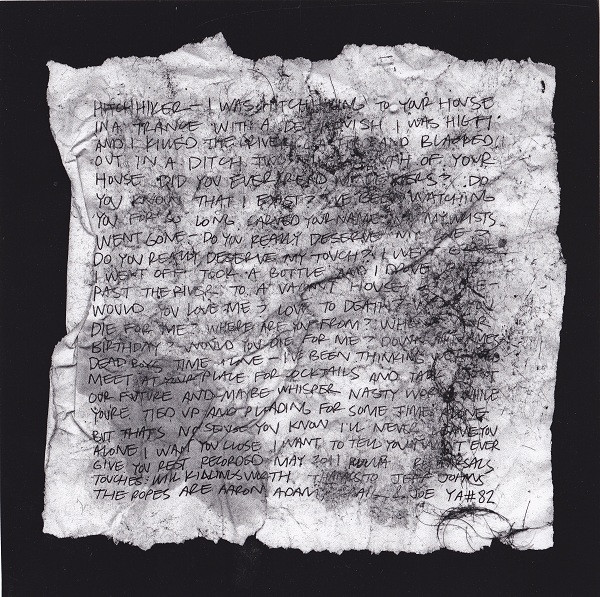 HITCHHIKER - I WAS HITCHHIKING TO YOUR HOUSE
IN A TRANCE WITH A DEATH WISH I WAS HIGH
AND I KILLED THE DRIVER AND BLACKED
OUT IN A DITCH OF YOUR
HOUSE DID YOU EVER READ MY LETTERS? DO
YOU KNOW THAT I EXIST? I'VE BEEN WATCHING
YOU FOR SO LONG CARVED YOUR NAME IN MY WRISTS
WENT GONE - DO YOU REALLY DESERVE MY LOVE?
DO YOU REALLY DESERVE MY TOUCH? I WENT
I WENT OFF I TOOK A BOTTLE AND I DROVE
PAST THE RIVER TO A VACANT HOUSE
WOULD YOU LOVE ME? LOVE TO DEATH?
DIE FOR ME? WHERE ARE YOU FROM?
BIRTHDAY WOULD YOU DIE FOR ME? DOWN
DEAD BOYS TIME ALONE - I'VE BEEN THINKING
MEET AT YOUR PLACE FOR COCKTAILS AND TALK
OUR FUTURE AND MAYBE WHISPER NASTY WORDS WHILE
YOU'RE TIED UP AND PLEADING FOR SOME TIME ALONE
BUT THATS NO SENSE YOU KNOW I'LL NEVER LEAVE YOU
ALONE I WANT YOU CLOSE I WANT TO TELL YOU I WON'T EVER
GIVE YOU REST RECORDED MAY 2011 REHEARSALS
TOUCHES: WILL KILLINGSWORTH THANKS TO JEFF JOHNS
THE ROPES ARE AARON ADAM & JOE YA#82